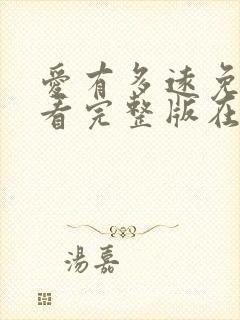 愛有多遠免
看完整版在
湯嘉